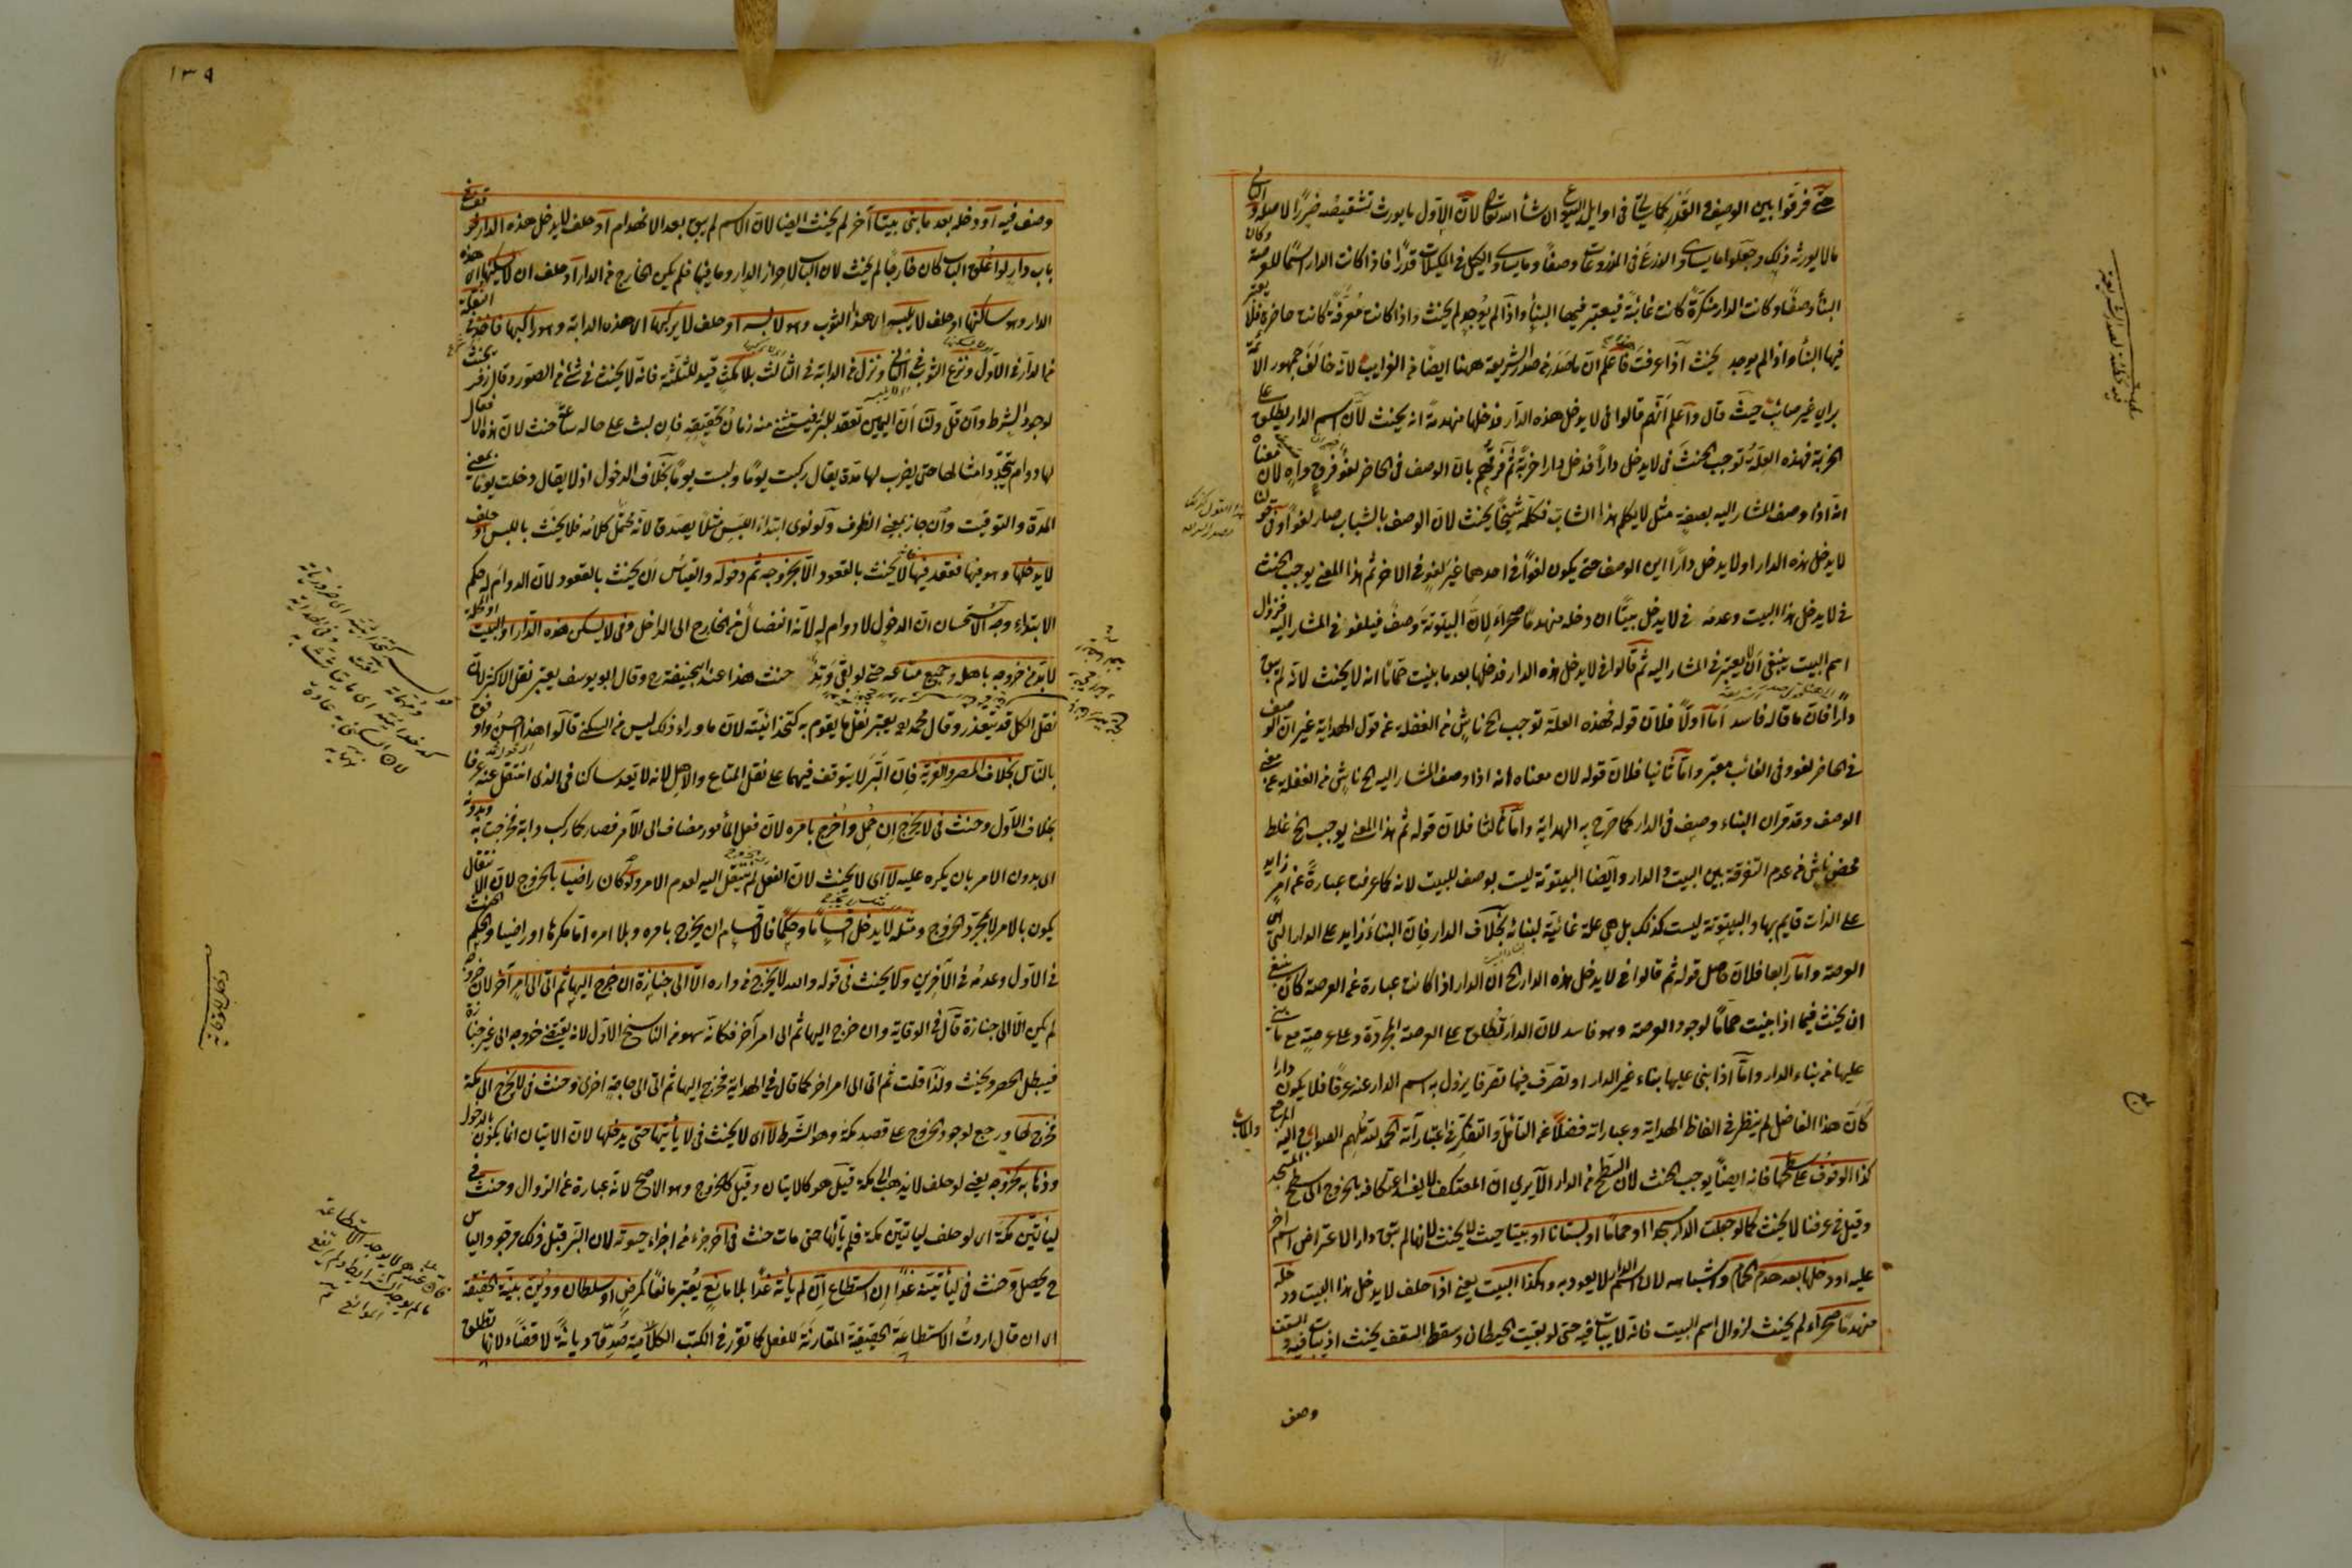 حتى فرقوا بين الوصف والقدر كما يأتي في اوايل البيوع ان شاء الله تعالى لان الاول ما يورث تشقيصه ضررا لاصله والثاني
ما لا يورثه ذلك وجعلوا ما يساوي الذرع في المذروعات وصفا وما يساوي الكيل في المكيلات قدرا فاذا كانت الدار اسما للعرصة وكان
البناء وصفا وكانت الدار منكرة كانت غائبة فيعتبر فيها البناء واذا لم يوجد لم يحنث واذا كانت معرفة كانت حاضرة فلا يعتبر
فيها البناء واذا لم يوجد يحنث اذا عرفت هذا فاعلم ان ما صدر من صدر الشريعة ههنا ايضا من الغرايب لانه خالف جمهور الائمة
براي غير صائب حيث قال واعلم انهم قالوا في لا يدخل هذه الدار فدخلها منهدمة انه يحنث لان اسم الدار يطلق على
الخربة فهذه العلة توجب الحنث في لا يدخل دارا فدخل دارا خربة ثم فرقهم بان الوصف في الحاضر لغو فرق واه لان معناه
انه اذا وصف المشار اليه بصفة مثل لا يكلم هذا الشاب فكلمه شيخا يحنث لان الوصف بالشباب صار لغوا وفي قولنا
لا يدخل هذه الدار او لا يدخل دارا اين الوصف حتى يكون لغوا في احدهما غير لغو في الاخر ثم هذا المعنى يوجب الحنث
في لا يدخل هذا البيت وعدمه في لا يدخل بيتا ان دخله منهدما صحراء لان البيتوتة وصف فيلغو في المشار اليه فزوال
اسم البيت ينبغي ان لا يعتبر في المشار اليه ثم قالوا في لا يدخل هذه الدار فدخلها بعد ما بنيت حماما انه لا يحنث لانه لم يبق
دارا فان ما قاله فاسد اما اولا فلان قوله فهذه العلة توجب الخ ناش من الغفلة عن قول الهداية غير ان الوصف
في الحاضر لغو وفي الغائب معتبر واما ثانيا فلان قوله لان معناه انه اذا وصف المشار اليه الخ ناش من الغفلة عن معنى
الوصف وقد قران البناء وصف في الدار كما صرح به الهداية واما ثالثا فلان قوله ثم هذا المعنى يوجب الخ غلط
محض ناش من عدم التفرقة بين البيت والدار وايضا البيتوتة ليست بوصف للبيت لانه كما عرفت عبارة عن امر زايد
على الذات قايم بها والبيتوتة ليست كذلك بل هي علة غائية لبنائه بخلاف الدار فان البناء زايد على الدار التي هي
العرصة واما رابعا فلان حاصل قوله ثم قالوا في لا يدخل هذه الدار الخ ان الدار اذا كانت عبارة عن العرصة كان ينبغي
ان يحنث فيما اذا بنيت حماما لوجود العرصة وهو فاسد لان الدار تطلق على العرصة المجردة وعلى عرصة مع ما بني
عليها من بناء الدار واما اذا بني عليها بناء غير الدار او تصرف فيها تصرفا يزول به اسم الدار عنه عرفا فلا يكون دارا
كان هذا الفاضل لم ينظر في الفاظ الهداية وعباراته فضلا عن التامل والتفكر في اعتباراته الحمد لله ملهم الصواب واليه المرجع والمآب
كذا الوقوف على سطحها فانه ايضا يوجب الحنث لان السطح من الدار الا يرى ان المعتكف لا يفسد اعتكافه بالخروج الى سطح المسجد
وقيل في عرفنا لا يحنث كما لو جعلت الدار مسجدا او حماما او بستانا او بيتا حيث لا يحنث لانها لم تبق دارا لاعتراض اسم آخر
عليه او دخلها بعد هدم الحمام واشباهه لان اسم الدار لا يعود به وهكذا البيت يعني اذا حلف لا يدخل هذا البيت ودخله
منهدما صحراء لم يحنث لزوال اسم البيت فانه لا يبات فيه حتى لو بقيت الحيطان وسقط السقف يحنث اذ يبات فيه والسقف
وصف
١٣٩
وصف فيه او دخله بعد ما بني بيتا آخر لم يحنث ايضا لان الاسم لم يبق بعد الانهدام او حلف لا يدخل هذه الدار فوقف في
باب دار لو اغلق الباب كان خارجا لم يحنث لان الباب لاحراز الدار وما فيها فلم يكن الخارج من الدار او حلف ان لا يسكن هذه
الدار وهو ساكنها او حلف لا يلبس هذا الثوب وهو لابسه او حلف لا يركب هذه الدابة وهو راكبها فاخذ في النقلة
من الدار في الاول ونزع الثوب في الثاني ونزل من الدابة في الثالث بلا مكث قيد للثلثة فانه لا يحنث في شئ من الصور وقال زفر يحنث
لوجود الشرط وان قل ولنا ان اليمين تعقد للبر فيستثنى منه زمان تحقيقه فان لبث على حاله ساعة حنث لان هذه الافعال
لها دوام بتجدد امثالها حتى يضرب لها مدة يقال ركبت يوما ولبست يوما بخلاف الدخول اذ لا يقال دخلت يوما بمعنى
المدة والتوقيت وان جاز بمعنى الظرف ولو نوى ابتداء اللبس مثلا يصدق لانه محتمل كلامه فلا يحنث باللبس او حلف
لا يدخلها وهو فيها فقعد فيها لا يحنث بالقعود الا بخروجه ثم دخوله والقياس ان يحنث بالقعود لان الدوام له حكم
الابتداء وجه الاستحسان ان الدخول لا دوام له لانه انفصال من الخارج الى الداخل وفي لا يسكن هذه الدار او البيت او المحلة
لا بد من خروجه باهله وجميع متاعه حتى لو بقي وتد حنث هذا عند ابي حنيفة رح وقال ابو يوسف يعتبر نقل الاكثر لان
نقل الكل قد يتعذر وقال محمد رح يعتبر نقل ما يقوم به كتخدائيته لان ما وراء ذلك ليس من السكنى قالوا هذا احسن وارفق
بالناس بخلاف المصر والقرية فان البر لا يتوقف فيهما على نقل المتاع والاهل لانه لا يعد ساكنا في الذي انتقل عنه عرفا
بخلاف الاول وحنث في لا يخرج ان حمل واخرج بامره لان فعل المأمور مضاف الى الآمر فصار كما ركب دابة فخرجت به وبدونه
اي بدون الامر بان يكره عليه لا اي لا يحنث لان الفعل لم ينتقل اليه لعدم الامر ولو كان راضيا بالخروج لان الانتقال
يكون بالامر لا بمجرد الخروج ومثله لا يدخل اقساما وحكما فالاقسام ان يخرج بامره وبلا امره اما مكرها او راضيا والحكم الحنث
في الاول وعدمه في الآخرين ولا يحنث في قوله والله لا يخرج من داره الا الى جنازة ان خرج اليها ثم اتى الى امر آخر لان خروجه
لم يكن الا الى جنازة قال في الوقاية وان خرج اليها ثم الى امر آخر فكانه سهو من الناسخ الاول لانه يقتضي خروجه الى غير جنازة
فيبطل الحصر ويحنث ولذا قلت ثم اتى الى امر اخر كما قال في الهداية فخرج اليها ثم اتى الى حاجة اخرى وحنث في لا يخرج الى مكة
فخرج لها ورجع لوجود الخروج على قصد مكة وهو الشرط لا اي لا يحنث في لا يأتيها حتى يدخلها لان الاتيان انما يكون بالدخول
وذهابه كخروجه يعني لو حلف لا يذهب الى مكة قيل هو كالاتيان وقيل كالخروج وهو الاصح لانه عبارة عن الزوال وحنث في
ليأتين مكة اي لو حلف ليأتين مكة فلم يأتها حتى مات حنث في آخر جزء من اجزاء حيوته لان البر قبل ذلك مرجو والياس
ح يحصل وحنث في ليأتينه غدا ان استطاع ان لم يأته غدا بلا مانع يعتبر مانعا كمرض او سلطان ودين بنية الحقيقة
اي ان قال اردت الاستطاعة الحقيقية المقارنة للفعل كما تقرر في الكتب الكلامية صدق ديانة لا قضاء لانها تطلق